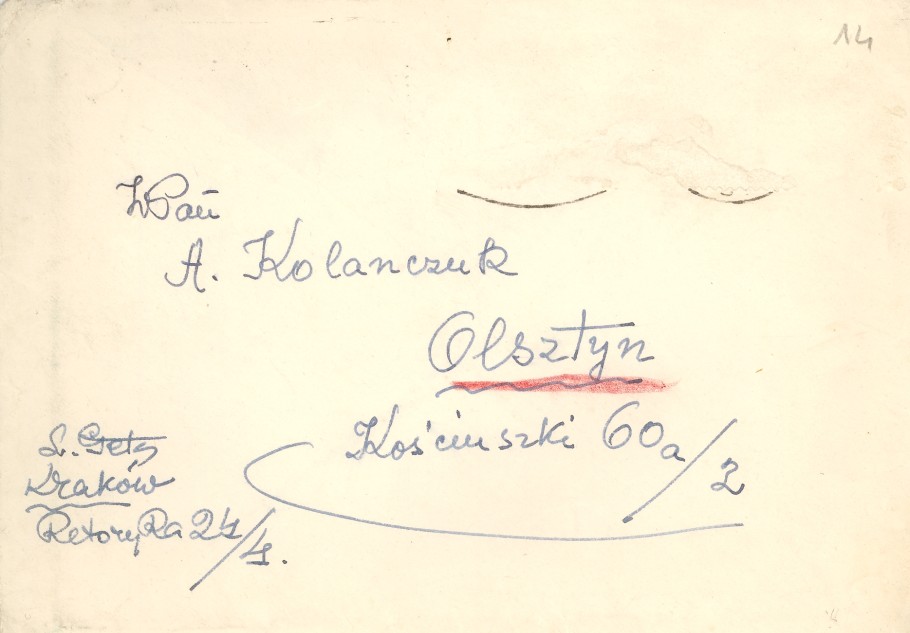 14
WPan
A. Kolanczuk
Olsztyn
Kościuszki 60a/2
L. Getz
Kraków
Retoryka 24/4.